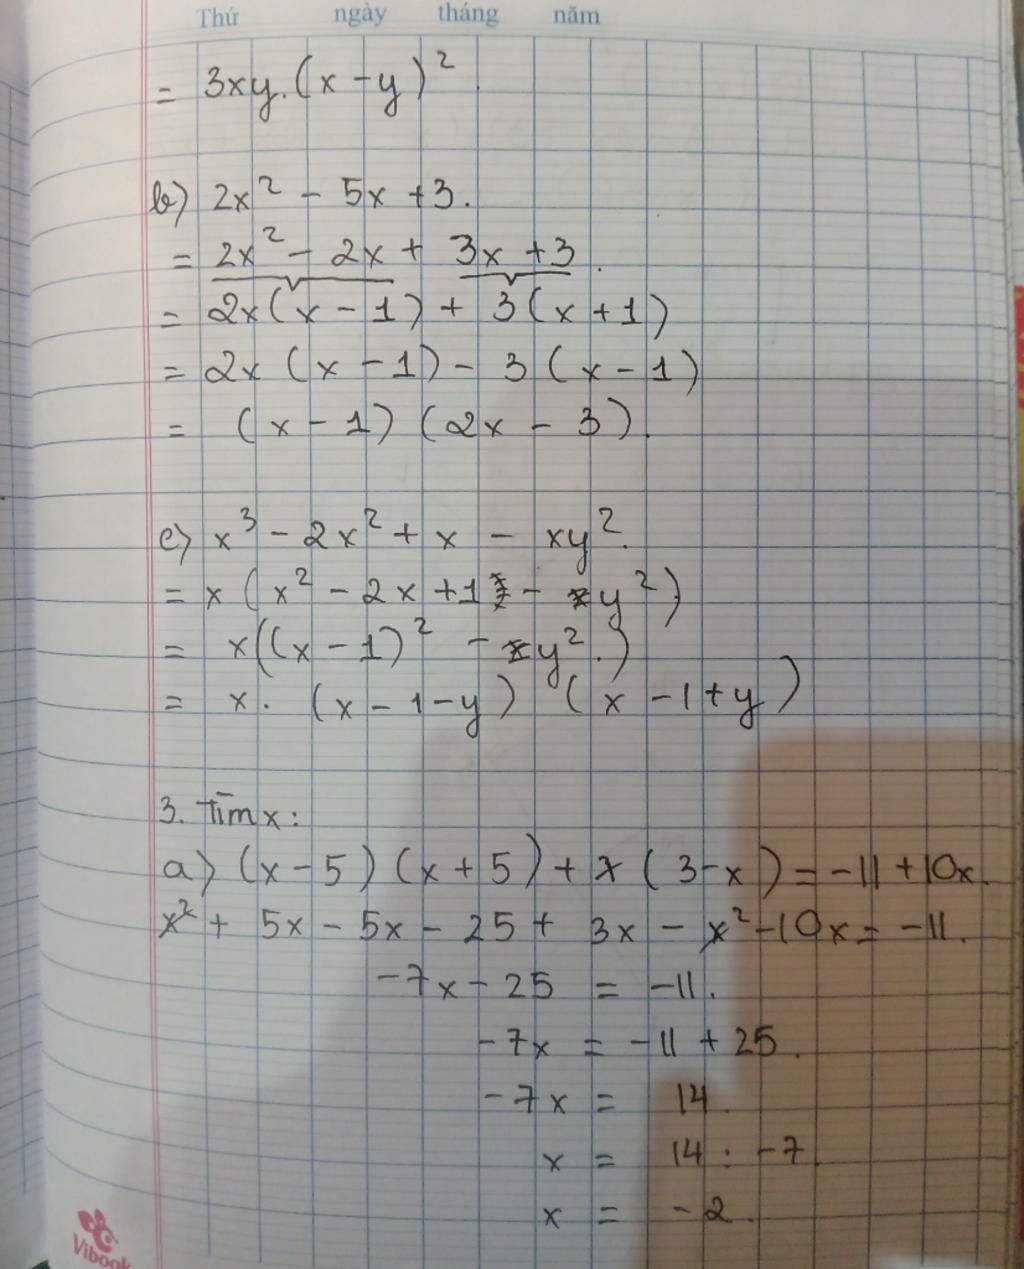 Thứ ngày tháng năm
= 3xy.(x - y)²
b) 2x² - 5x + 3.
= 2x² - 2x + 3x + 3.
= 2x(x - 1) + 3(x + 1)
= 2x (x - 1) - 3 (x - 1)
= (x - 1) (2x - 3).
c) x³ - 2x² + x - xy².
= x (x² - 2x + 1 - y²)
= x((x - 1)² - y².)
= x. (x - 1 - y) (x - 1 + y)
3. Tìm x:
a) (x - 5) (x + 5) + x (3 - x) = -11 + 10x.
x² + 5x - 5x - 25 + 3x - x² - 10x = -11.
-7x - 25 = -11.
-7x = -11 + 25.
-7x = 14.
x = 14 : -7.
x = -2.
Vibook